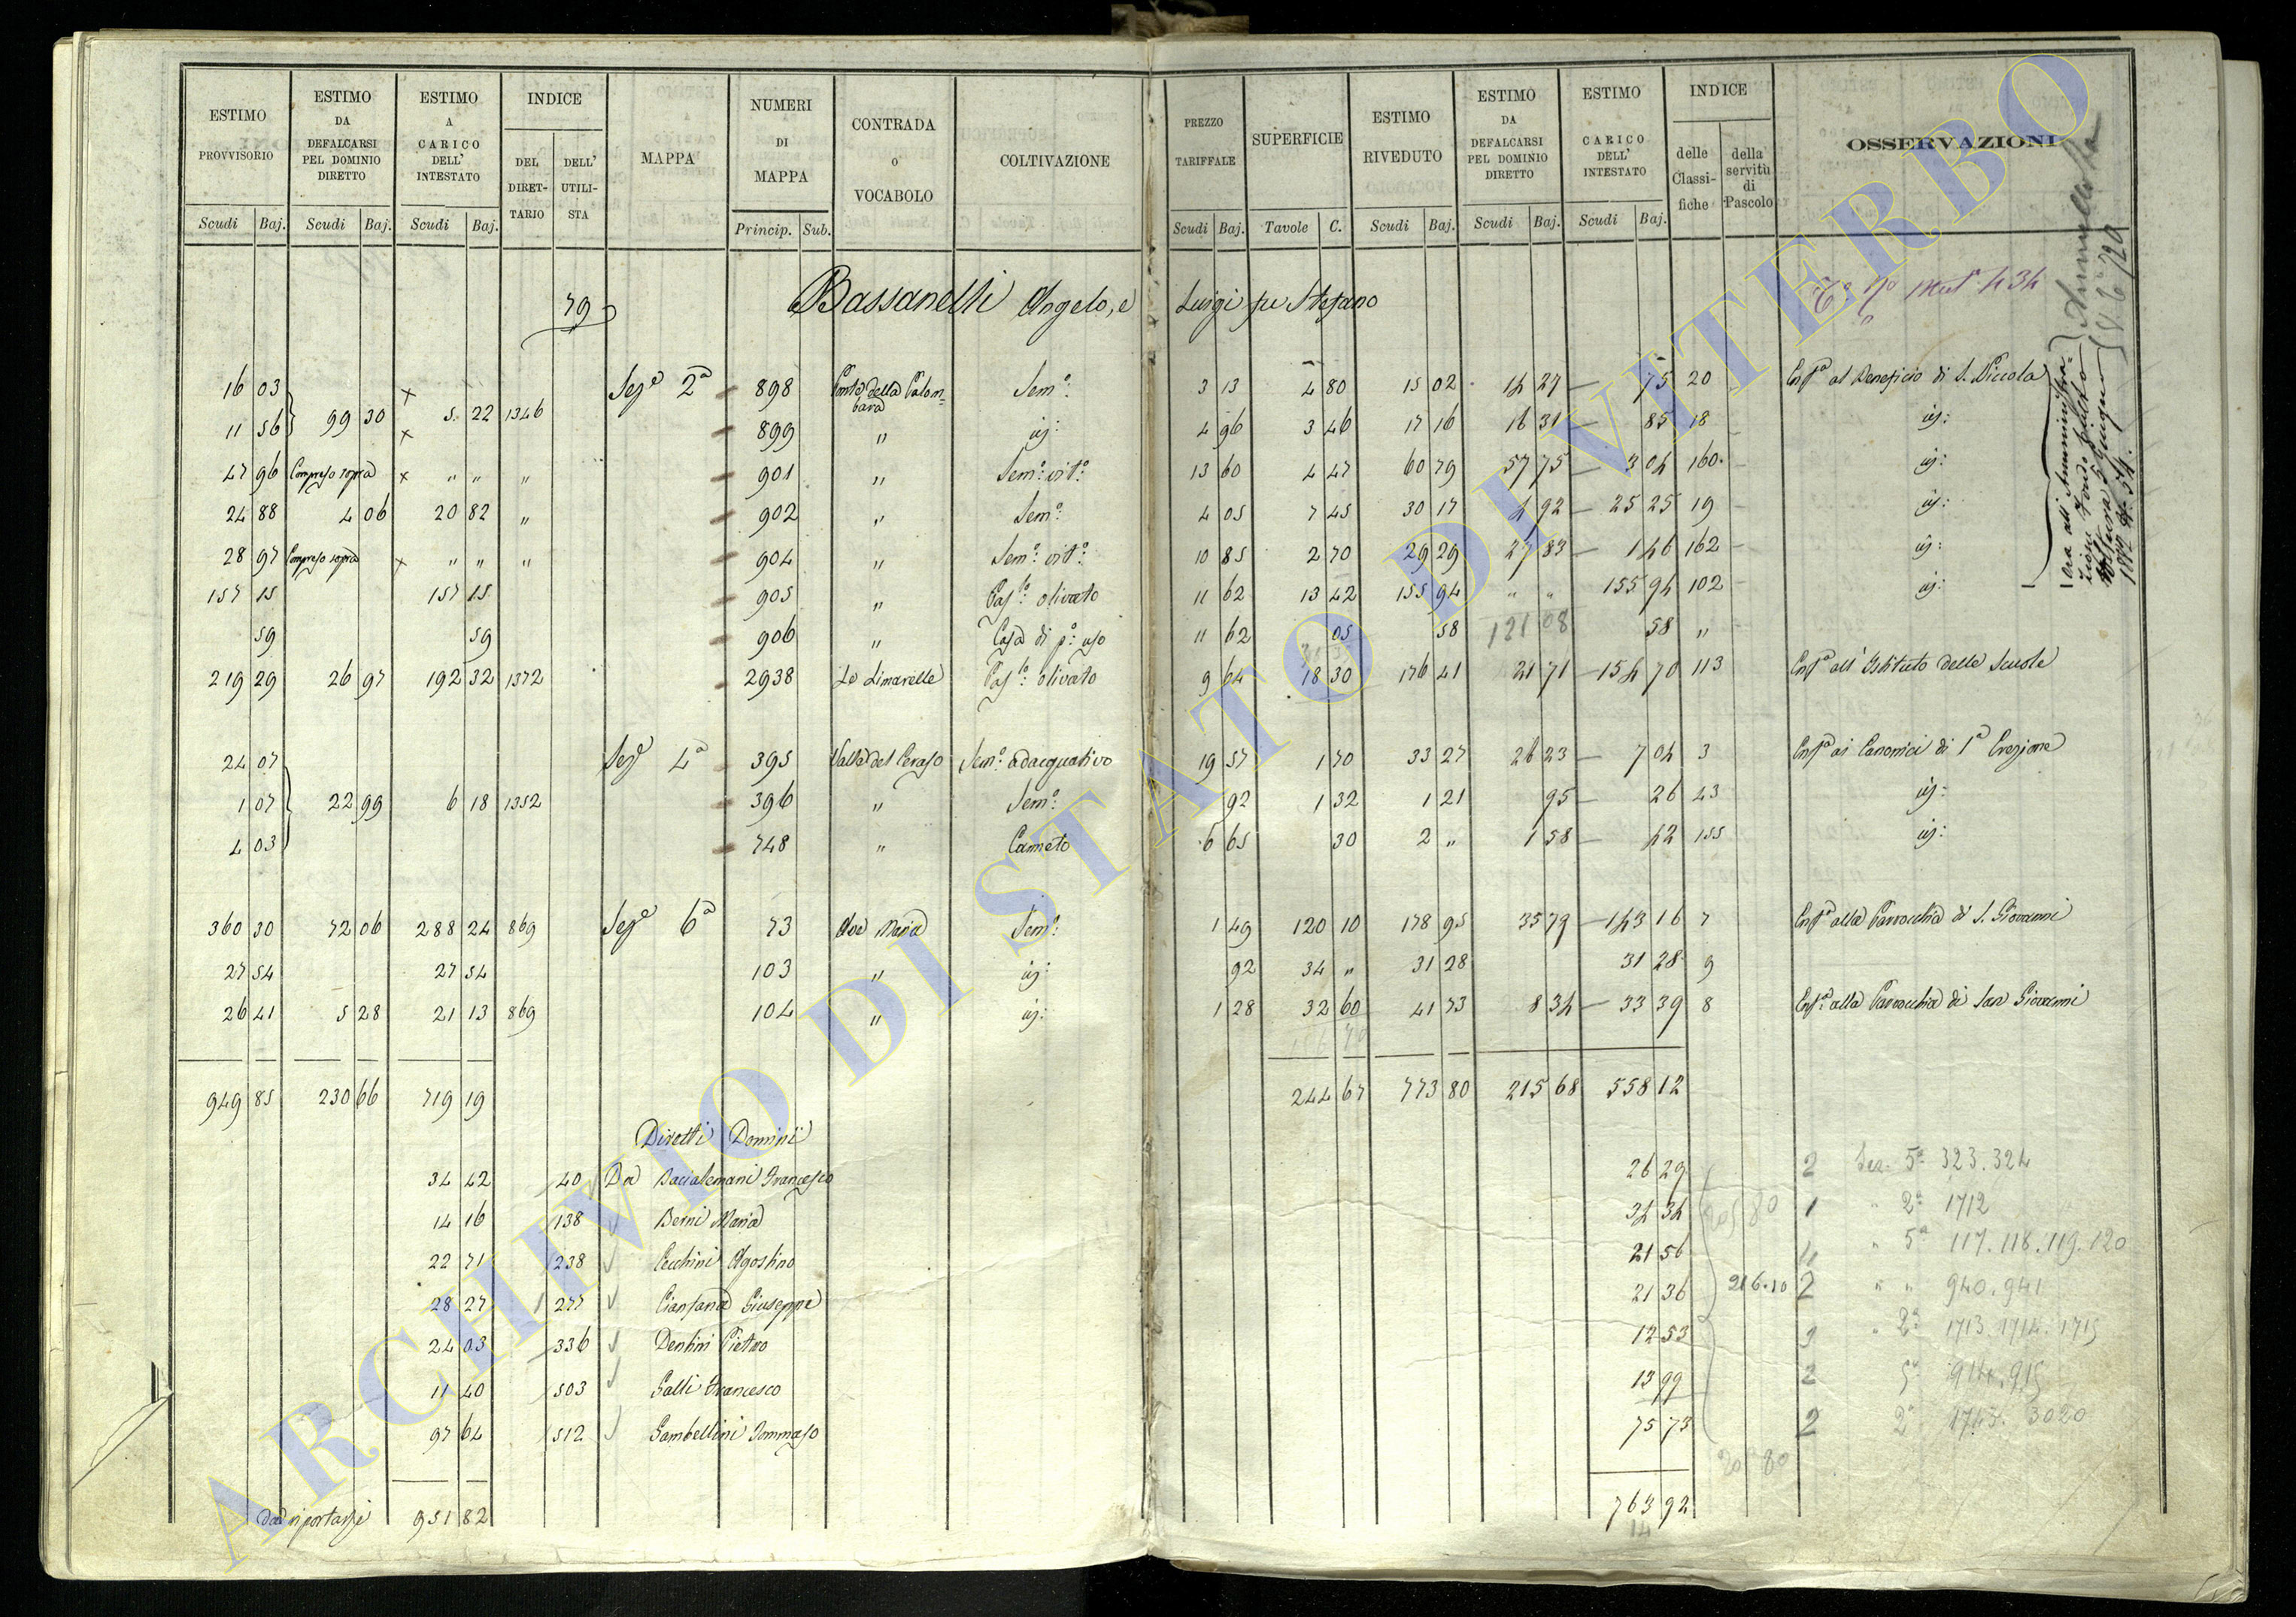 ESTIMO PROVVISORIO | ESTIMO DA DEFALCARSI PEL DOMINIO DIRETTO | ESTIMO A CARICO DELL' INTESTATO | INDICE DEL DIRETTARIO | DELL' UTILISTA | MAPPA | NUMERI DI MAPPA | CONTRADA O VOCABOLO | COLTIVAZIONE | PREZZO TARIFFALE | SUPERFICIE | ESTIMO RIVEDUTO | ESTIMO DA DEFALCARSI PEL DOMINIO DIRETTO | ESTIMO A CARICO DELL' INTESTATO | INDICE delle Classifiche | della servitù di Pascolo | OSSERVAZIONI
Scudi Baj. | Scudi Baj. | Scudi Baj. | Princip. Sub. | Scudi Baj. | Tavole C. | Scudi Baj. | Scudi Baj. | Scudi Baj.
79 Bassanelli Angelo, e Luigi fu Stefano
16 03 | Sez.e 2a | 898 | della Palombara | Sem.o | 3 13 | 4 80 | 15 02 | 14 27 | 75 | 20 | Enf.a al Beneficio di S. Niccola
11 56 | 99 30 | 5 22 | 1346 | 899 | " | id: | 4 96 | 3 46 | 17 16 | 16 31 | 85 | 18 | id:
47 96 | Compreso sopra | " " | " | 901 | " | Sem.o vit.o | 13 60 | 4 47 | 60 79 | 57 75 | 3 04 | 160 | id:
24 88 | 4 06 | 20 82 | " | 902 | " | Sem.o | 4 05 | 7 45 | 30 17 | 4 92 | 25 25 | 19 | id:
28 97 | Compreso sopra | " " | " | 904 | " | Sem.o vit.o | 10 85 | 2 70 | 29 29 | 27 83 | 1 46 | 162 | id:
157 15 | 157 15 | 905 | " | Pas.lo olivato | 11 62 | 13 42 | 155 94 | " " | 155 94 | 102 | id:
59 | 59 | 906 | " | Casa di p.o uso | 11 62 | 05 | 58 | 121 08 | 58 | "
219 29 | 26 97 | 192 32 | 1372 | 2938 | Le Limarelle | Pas.lo olivato | 9 64 | 18 30 | 176 41 | 21 71 | 154 70 | 113 | Enf.a all' Istituto delle Scuole
24 07 | Sez.e 4a | 395 | Valle del Ceraso | Sem.o adacquativo | 19 57 | 1 70 | 33 27 | 26 23 | 7 04 | 3 | Enf.a ai Canonici di 1a Erezione
1 07 | 22 99 | 6 18 | 1352 | 396 | " | Sem.o | 92 | 1 32 | 1 21 | 95 | 26 | 43 | id:
4 03 | 748 | " | Canneto | 6 65 | 30 | 2 " | 1 58 | 42 | 155 | id:
360 30 | 72 06 | 288 24 | 869 | Sez.e 6a | 73 | Ave Maria | Sem.o | 1 49 | 120 10 | 178 95 | 35 79 | 143 16 | 7 | Enf.a alla Parrocchia di S. Giovanni
27 54 | 27 54 | 103 | " | id: | 92 | 34 " | 31 28 | 31 28 | 9
26 41 | 5 28 | 21 13 | 869 | 104 | " | id: | 1 28 | 32 60 | 41 73 | 8 34 | 33 39 | 8 | Enf.a alla Parrocchia di San Giovanni
949 85 | 230 66 | 719 19 | 244 67 | 773 80 | 215 68 | 558 12
Diretti Dominii
34 42 | 40 | Da Francesco | 26 29 | 2 Sez. 5a 323.324
14 16 | 138 | Berni Maria | 34 34 | 1 " 2a 1712
22 71 | 238 | Cecchini Agostino | 21 56 | 4 " 5a 117.118.119.120
28 27 | 277 | Cianfana Giuseppe | 21 36 | 216.10 | 2 " " 940.941
24 03 | 336 | Dentini Pietro | 12 53 | 3 " 2a 1713.1714.1715
11 40 | 503 | Galli Francesco | 13 99 | 2 5a 914.915
97 64 | 512 | Gambellini Tommaso | 75 73 | 2 2a 1743. 3020
da riportarsi 951 82 | 763 92
Annullata
ora all' Amministrazione Fondo Culto
Voltura 5 Giugno
1882 N. 34.
ARCHIVIO DI STATO DI VITERBO